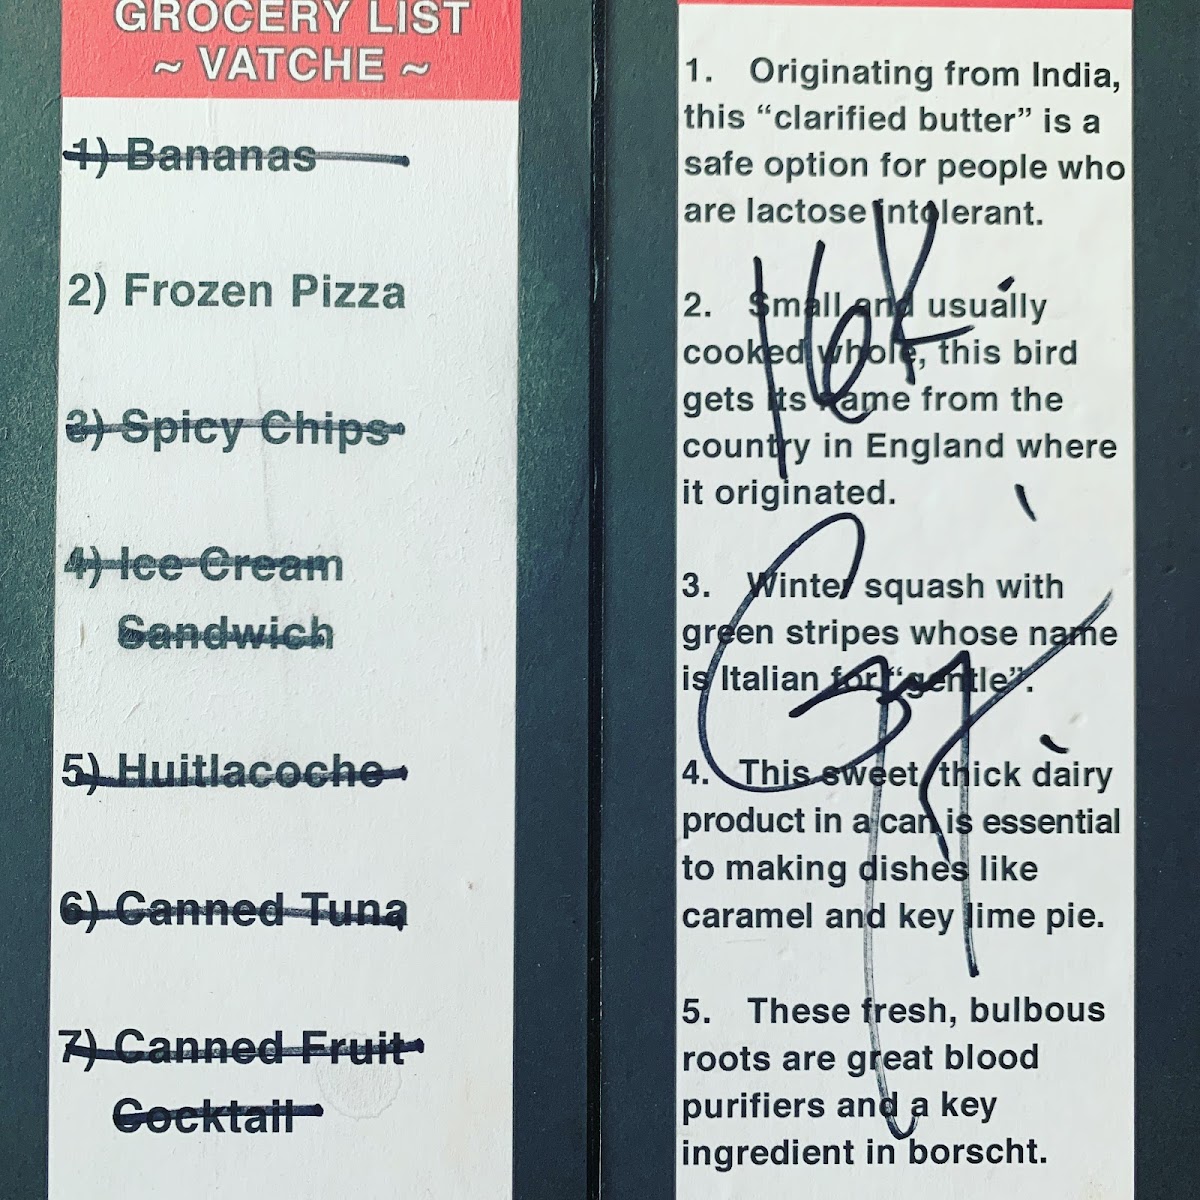 GROCERY LIST
~ VATCHE ~
1) Bananas
2) Frozen Pizza
3) Spicy Chips
4) Ice Cream
Sandwich
5) Huitlacoche
6) Canned Tuna
7) Canned Fruit
Cocktail
1. Originating from India,
this “clarified butter” is a
safe option for people who
are lactose intolerant.
2. Small and usually
cooked whole, this bird
gets its name from the
country in England where
it originated.
3. Winter squash with
green stripes whose name
is Italian for “gentle”.
4. This sweet, thick dairy
product in a can is essential
to making dishes like
caramel and key lime pie.
5. These fresh, bulbous
roots are great blood
purifiers and a key
ingredient in borscht.